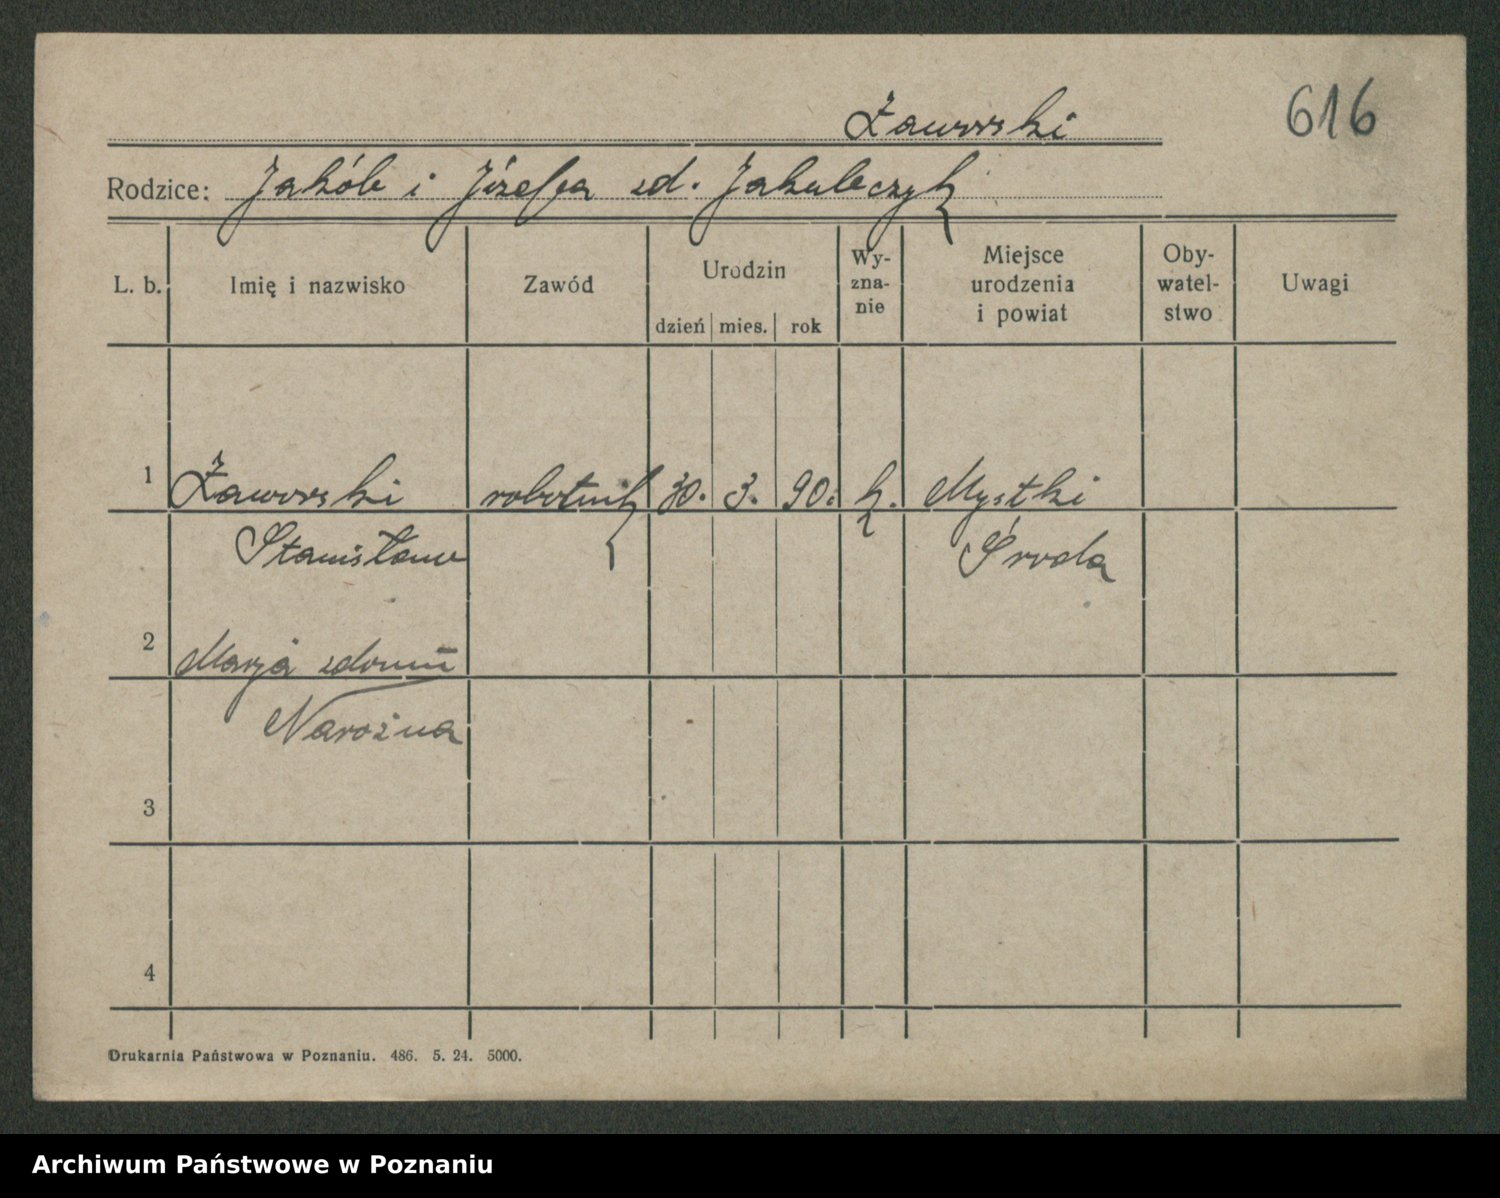 616
Żaworski
Rodzice: Jakób i Józefa zd. Jakubczyk
L. b. Imię i nazwisko Zawód Urodzin dzień mies. rok Wy-zna-nie Miejsce urodzenia i powiat Oby-watel-stwo Uwagi
1 Żaworski robotnik 30. 3. 90. k. Mystki
Stanisław Środa
2 Marja zdomu
Narożna
3
4
Drukarnia Państwowa w Poznaniu. 486. 5. 24. 5000.
Archiwum Państwowe w Poznaniu